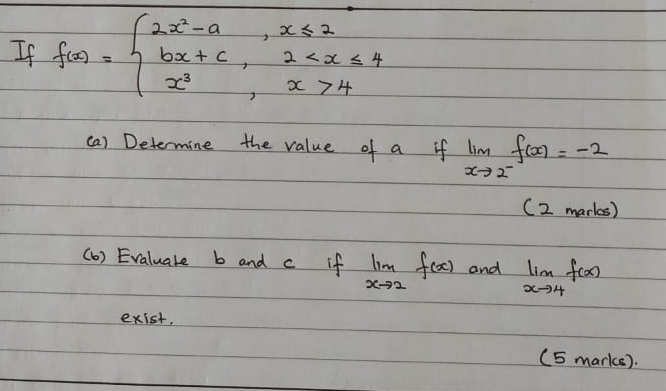 2x² - a , x ≤ 2
If f(x) = { bx + c , 2 < x ≤ 4
x³ , x > 4
(a) Determine the value of a if lim f(x) = -2
x→2⁻
(2 marks)
(b) Evaluate b and c if lim f(x) and lim f(x)
x→2 x→4
exist.
(5 marks).